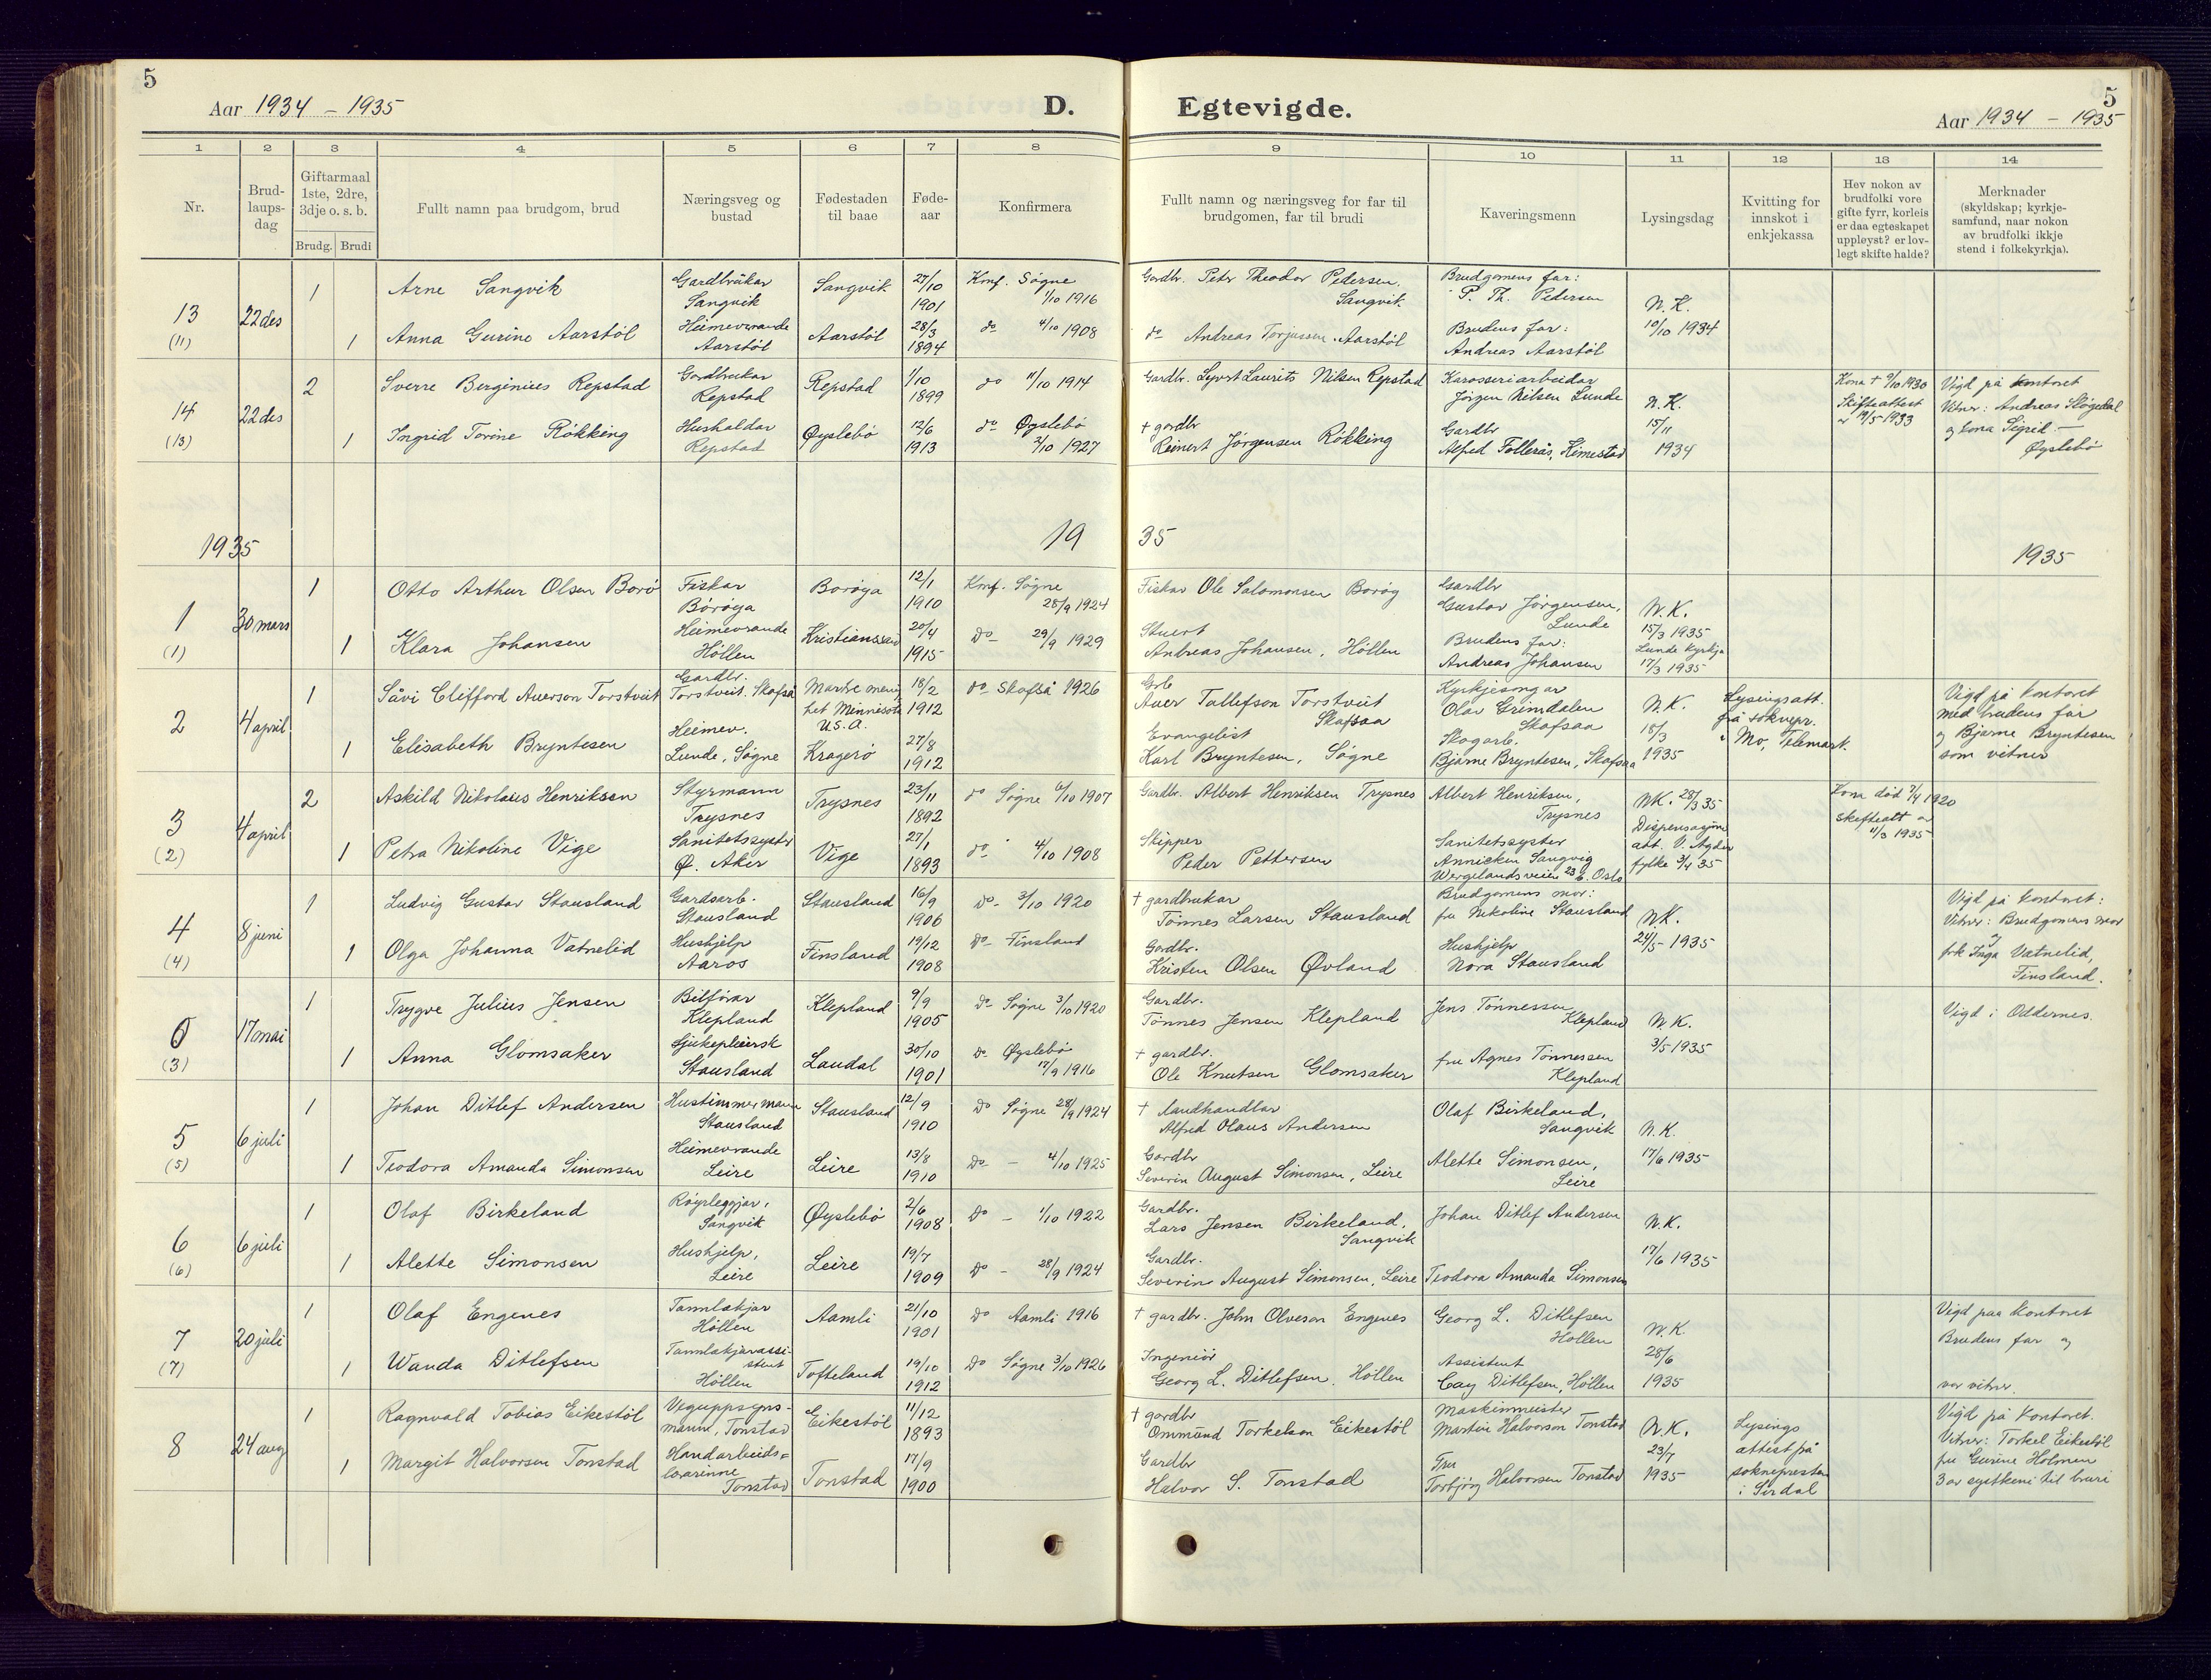 5
Aar 1934 - 1935
D.
Egtevigde.
5
Aar 1934 - 1935
1 2 3 4 5 6 7 8 9 10 11 12 13 14
Nr.
Brud-
laups-
dag
Giftarmaal
1ste, 2dre,
3dje o. s. b.
Brudg. Brudi
Fullt namn paa brudgom, brud
Næringsveg og
bustad
Fødestaden
til baae
Føde-
aar
Konfirmera
Fullt namn og næringsveg for far til
brudgomen, far til brudi
Kaveringsmenn
Lysingsdag
Kvitting for
innskot i
enkjekassa
Hev nokon av
brudfolki vore
gifte fyrr, korleis
er daa egteskapet
uppløyst? er lov-
legt skifte halde?
Merknader
(skyldskap; kyrkje-
samfund, naar nokon
av brudfolki ikkje
stend i folkekyrkja).
13
(11)
22 des
1
Arne Sangvik
Gardbrukar
Sangvik
Sangvik
27/10
1901
Konf. Søgne
1/10 1916
Gardbr. Petr Theodor Pedersen,
Sangvik
Brudgomens far:
P. Th. Pedersen
N.K.
10/10 1934
1
Anna Gurine Aarstøl
Heimeverande
Aarstøl
Aarstøl
28/3
1894
do 4/10 1908
do Andreas Torjussen Aarstøl
Brudens far:
Andreas Aarstøl
14
(13)
22 des
2
Sverre Berginius Repstad
Gardbrukar
Repstad
Repstad
1/10
1899
do 11/10 1914
Gardbr. Syvert Laurits Nilsen Repstad
Karosseriarbeidar
Jörgen Nilsen Lunde
N.K.
15/11
1934
Kona † 9/10 1930
Skifteattest
19/5 1933
Vigd på kontoret
Vitner: Andreas Fløgedal
og kona Sigrid
Øyslebø
1
Ingrid Torine Røkking
Hushaldar
Repstad
Øyslebø
12/6
1913
do Øyslebø
2/10 1927
† gardbr
Reinert Jörgensen Røkking
Gardbr
Alfred Follerås, Kimestad
1935
19 35
1935
1
(1)
30 mars
1
Otto Arthur Olsen Borø
Fiskar
Borøya
Borøya
12/1
1910
Konf. Søgne
28/9 1924
Fiskar Ole Salomonsen Borøy
Gardbr
Gustav Jørgensen,
Lunde
N.K.
15/3 1935
Lunde kyrkja
17/3 1935
1
Klara Johansen
Heimeverande
Høllen
Kristianssand
20/4
1915
Do 29/9 1929
Stuert
Andreas Johansen, Höllen
Brudens far:
Andreas Johansen
2
4 april
1
Såvi Clifford Auerson Torstveit
Gardbr.
Torstveit. Skafså
Martre menig
het Minnisota
U.S.A.
18/2
1912
do Skafså 1926
Grb
Auer Tallefson Torstveit
Skafsaa
Kyrkjesongar
Olav Grimdalen
Skafsaa
N.K.
18/3
1935
Lysingsatt.
frå sknepr.
i Mo, Telemark.
Vigd på kontoret
med brudens far
og Bjarne Bryntesen
som vitner
1
Elisabeth Bryntesen
Heimev.
Lunde, Søgne
Kragerö
27/8
1912
Evangelist
Karl Bryntesen, Søgne
Skogarb.
Bjarne Bryntesen, Skafsaa
3
(2)
4 april
2
Askild Nikolaus Henriksen
Styrmann
Trysnes
Trysnes
23/11
1892
do Søgne 6/10 1907
Gardbr. Albert Henriksen Trysnes
Albert Henriksen,
Trysnes
NK. 28/3 35
Dispensasjon
att. V. Agder
fylke 3/4 35
Kona död 7/4 1920
skifteatt
11/3 1935
1
Petra Nikoline Vige
Sanitetssyster
Ø. Aker
Vige
27/1
1893
do 4/10 1908
Skipper
Peder Pettersen
Sanitetssyster
Annicken Sangvig
Wergelandsveien 23 b. Oslo
4
(4)
8 juni
1
Ludvig Gustav Stausland
Gardsarb.
Stausland
Stausland
16/9
1906
Do - 3/10 1920
† gardbrukar
Tönnes Larsen Stausland
Brudgomens mor:
fru Nikoline Stausland
N.K.
24/5 1935
Vigd på kontoret:
Vitner: Brudgomens mor
og
frk Inga Vatnelid,
Finsland.
1
Olga Johanna Vatnelid
Hushjelp
Aaros
Finsland
19/12
1908
Do - Finsland
Gardbr.
Kristen Olsen Øvland
Hushjelp
Nora Stausland
(3)
17 mai
1
Trygve Julius Jensen
Bilførar
Klepland
Klepland
9/9
1905
Do Søgne 3/10 1920
Gardbr.
Tönnes Jensen Klepland
Jens Tönnessen
Klepland
N.K.
3/5 1935
Vigd i Oddernes.
1
Anna Glomsaker
Sjukepleiersk
Stausland
Laudal
30/10
1901
Do Øyslebø
17/9 1916
† gardbr.
Ole Knutsen Glomsaker
fru Agnes Tönnessen
Klepland
5
(5)
6 juli
1
Johan Ditlef Andersen
Hustimmermann
Stausland
Stausland
12/9
1910
Do Søgne 28/9 1924
† landhandlar
Alfred Olaus Andersen
Olaf Birkeland,
Sangvik
N.K.
17/6 1935
1
Teodora Amanda Simonsen
Heimeverande
Leire
Leire
13/8
1910
Do - 4/10 1925
Gardbr
Severin August Simonsen, Leire
Alette Simonsen,
Leire
6
(6)
6 juli
1
Olaf Birkeland
Røyrleggjar,
Sangvik
Øyslebö
2/6
1908
Do - 1/10 1922
Gardbr.
Lars Jensen Birkeland,
Sangvik
Johan Ditlef Andersen
N.K.
17/6 1935
1
Alette Simonsen
Hushjelp,
Leire
Leire
19/7
1909
Do - 28/9 1924
Gardbr.
Severin August Simonsen, Leire
Teodora Amanda Simonsen
7
(7)
20 juli
1
Olaf Engenes
Tannlækjar
Höllen
Aamli
21/10
1901
Do Aamli 1916
† gardbr. John Olveson Engenes
Georg L. Ditlefsen
Hollen
N.K.
28/6
1935
Vigd paa kontoret
Brudens far og
var vitner.
1
Wanda Ditlefsen
Tannlækjarassi-
stent
Höllen
Tofteland
19/10
1912
Do Søgne 3/10 1926
Ingeniör
Georg L. Ditlefsen, Höllen
Assistent
Cay Ditlefsen, Höllen
8
24 aug
1
Ragnvald Tobias Eikestøl
Veguppsyns-
mann, Tonstad
Eikestøl
11/12
1893
† gardbr
Ommund Torkelson Eikestøl
Maskinmeister
Martin Halvorson Tonstad
N.K.
23/7
1935
Lysings
attest på
soknepresten
i Sirdal
Vigd på kontoret.
Vitner: Torkel Eikestøl
fru Gurine Holmen
3 av syskeni til bruri
1
Margit Halvorsen Tonstad
Handarbeids-
lærarinne
Tonstad
Tonstad
17/9
1900
Gardbr
Halvor S. Tonstad
Fru
Torbjörg Halvorsen Tonstad